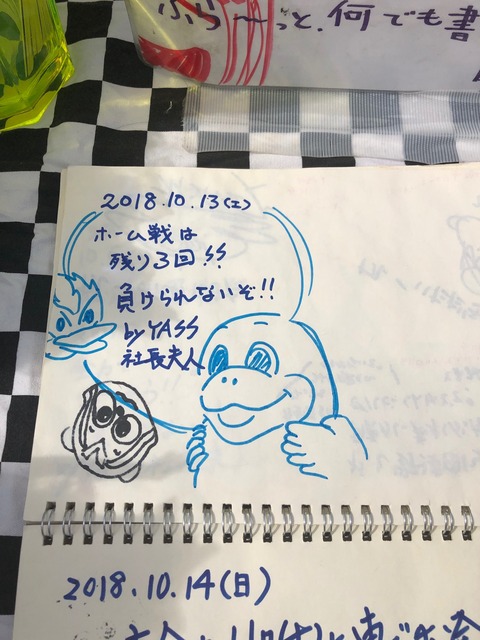 ふら〜っと、何でも書
2018.10.13(土)
ホーム戦は
残り3回!!
負けられないぞ!!
by YASS
社長夫人
2018.10.14(日)